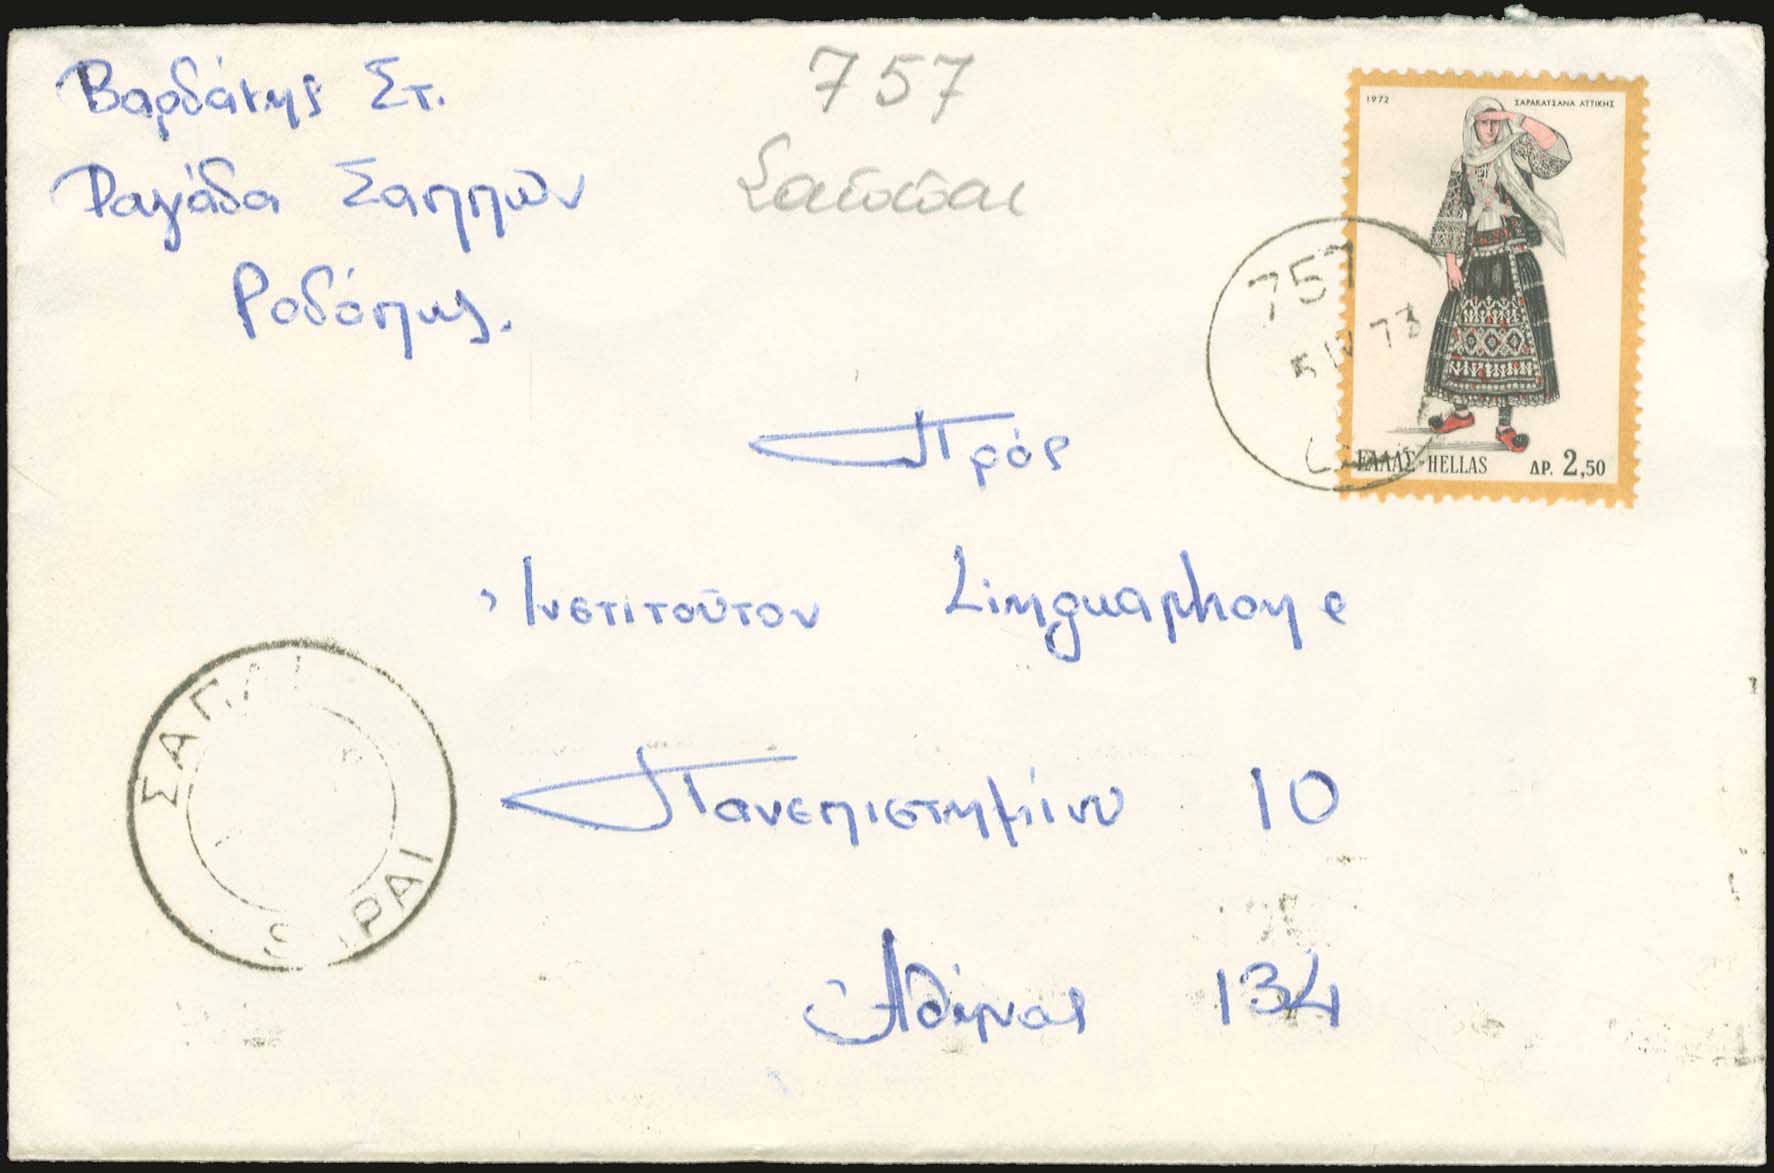 Βαρδάκης Στ.
Ραγάδα Σαππῶν
Ροδόπης.
757
Σαππαι
1972 ΣΑΡΑΚΑΤΣΑΝΑ ΑΤΤΙΚΗΣ
ΕΛΛΑΣ-HELLAS ΔΡ. 2,50
757
5 IV 73
Πρός
Ἰνστιτοῦτον Linguaphone
Πανεπιστημίου 10
Ἀθήνας 134
ΣΑΠΑΙ
SAPAI